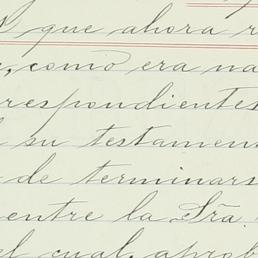 que ahora
, como era na
respondientes
su testamen
de terminars
entre la Sra.
el cual, aprob